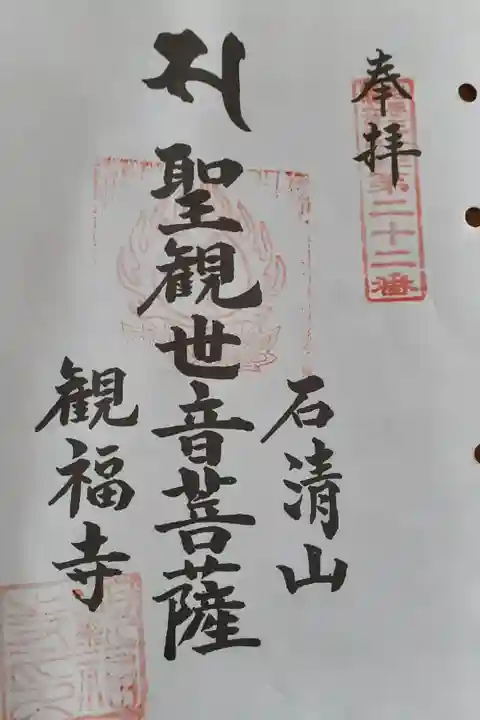 奉拝
第二十二番
石清山
聖観世音菩薩
観福寺